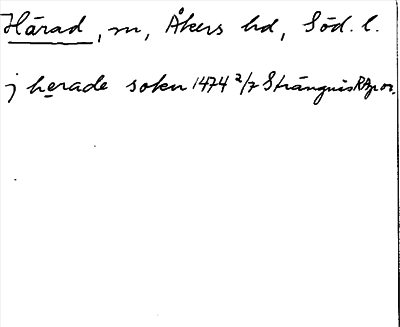 Härad, m, Åkers hd, Söd. l.
j herade soken 1474 2/7 Strängnäs RAp or.